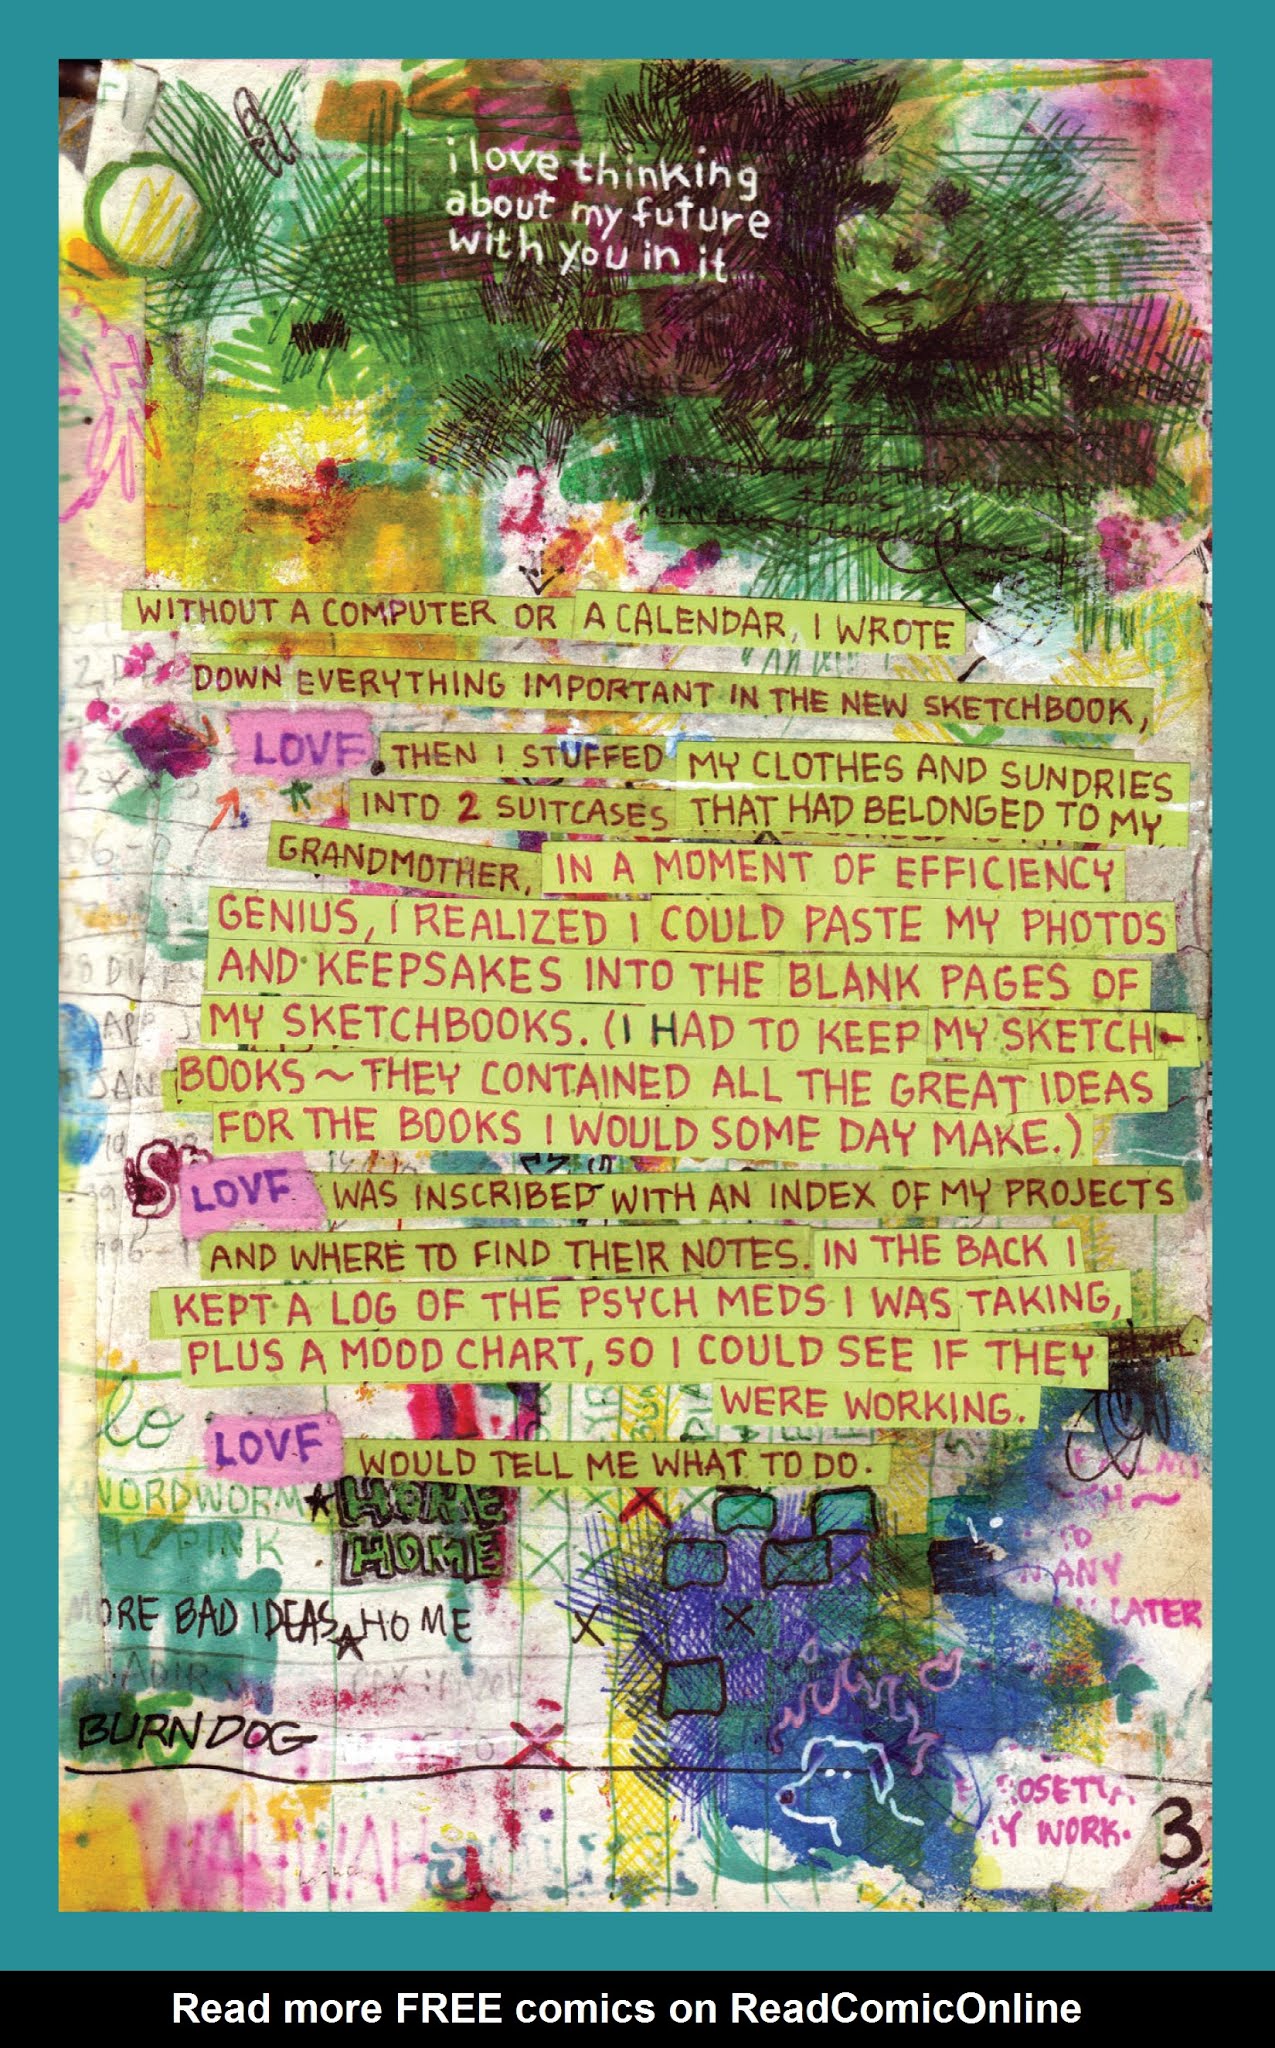 i love thinking
about my future
with you in it
WITHOUT A COMPUTER OR A CALENDAR, I WROTE
DOWN EVERYTHING IMPORTANT IN THE NEW SKETCHBOOK,
LOVE. THEN I STUFFED MY CLOTHES AND SUNDRIES
INTO 2 SUITCASES THAT HAD BELONGED TO MY
GRANDMOTHER. IN A MOMENT OF EFFICIENCY
GENIUS, I REALIZED I COULD PASTE MY PHOTOS
AND KEEPSAKES INTO THE BLANK PAGES OF
MY SKETCHBOOKS. (I HAD TO KEEP MY SKETCH-
BOOKS ~ THEY CONTAINED ALL THE GREAT IDEAS
FOR THE BOOKS I WOULD SOME DAY MAKE.)
LOVE WAS INSCRIBED WITH AN INDEX OF MY PROJECTS
AND WHERE TO FIND THEIR NOTES. IN THE BACK I
KEPT A LOG OF THE PSYCH MEDS I WAS TAKING,
PLUS A MOOD CHART, SO I COULD SEE IF THEY
WERE WORKING.
LOVE WOULD TELL ME WHAT TO DO.
WORDWORM HOME
PINK HOME
ANY
MORE BAD IDEAS HOME LATER
NADIR
BURNDOG
WORK.
WAHWAH
3
Read more FREE comics on ReadComicOnline